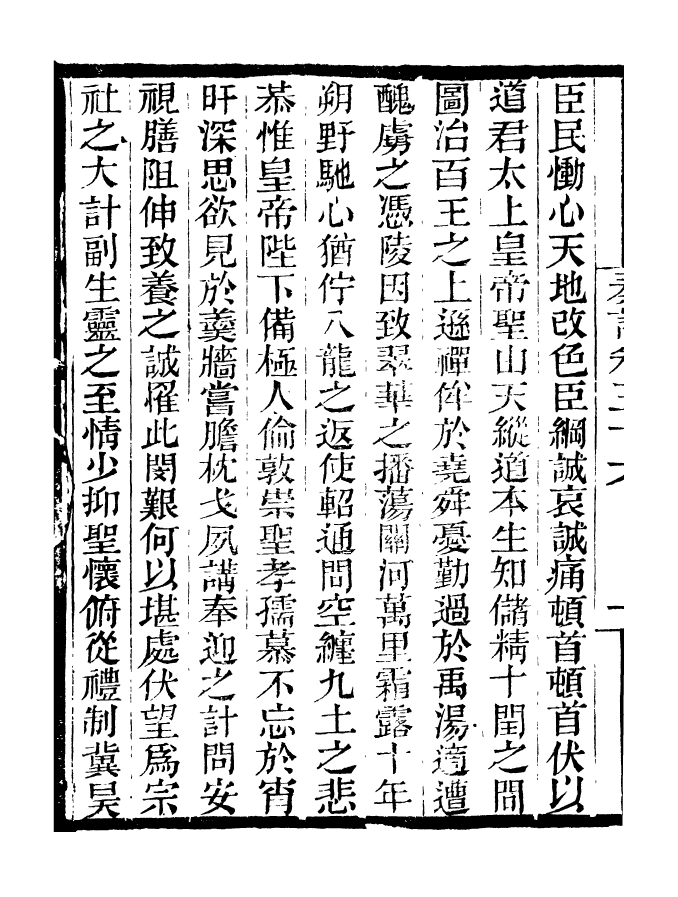 臣民慟心天地改色臣綱誠哀誠痛頓首頓首伏以
道君太上皇帝聖山天縱道本生知儲精十閏之間
圖治百王之上遜禪侔於堯舜憂勤過於禹湯適遭
醜虜之憑陵因致翠華之播蕩關河萬里霜露十年
朔野馳心猶佇八龍之返使軺通問空纏九土之悲
恭惟皇帝陛下備極人倫敦崇聖孝孺慕不忘於宵
旰深思欲見於羹牆嘗膽枕戈夙講奉迎之計問安
視膳阻伸致養之誠罹此閔艱何以堪處伏望為宗
社之大計副生靈之至情少抑聖懷俯從禮制冀昊